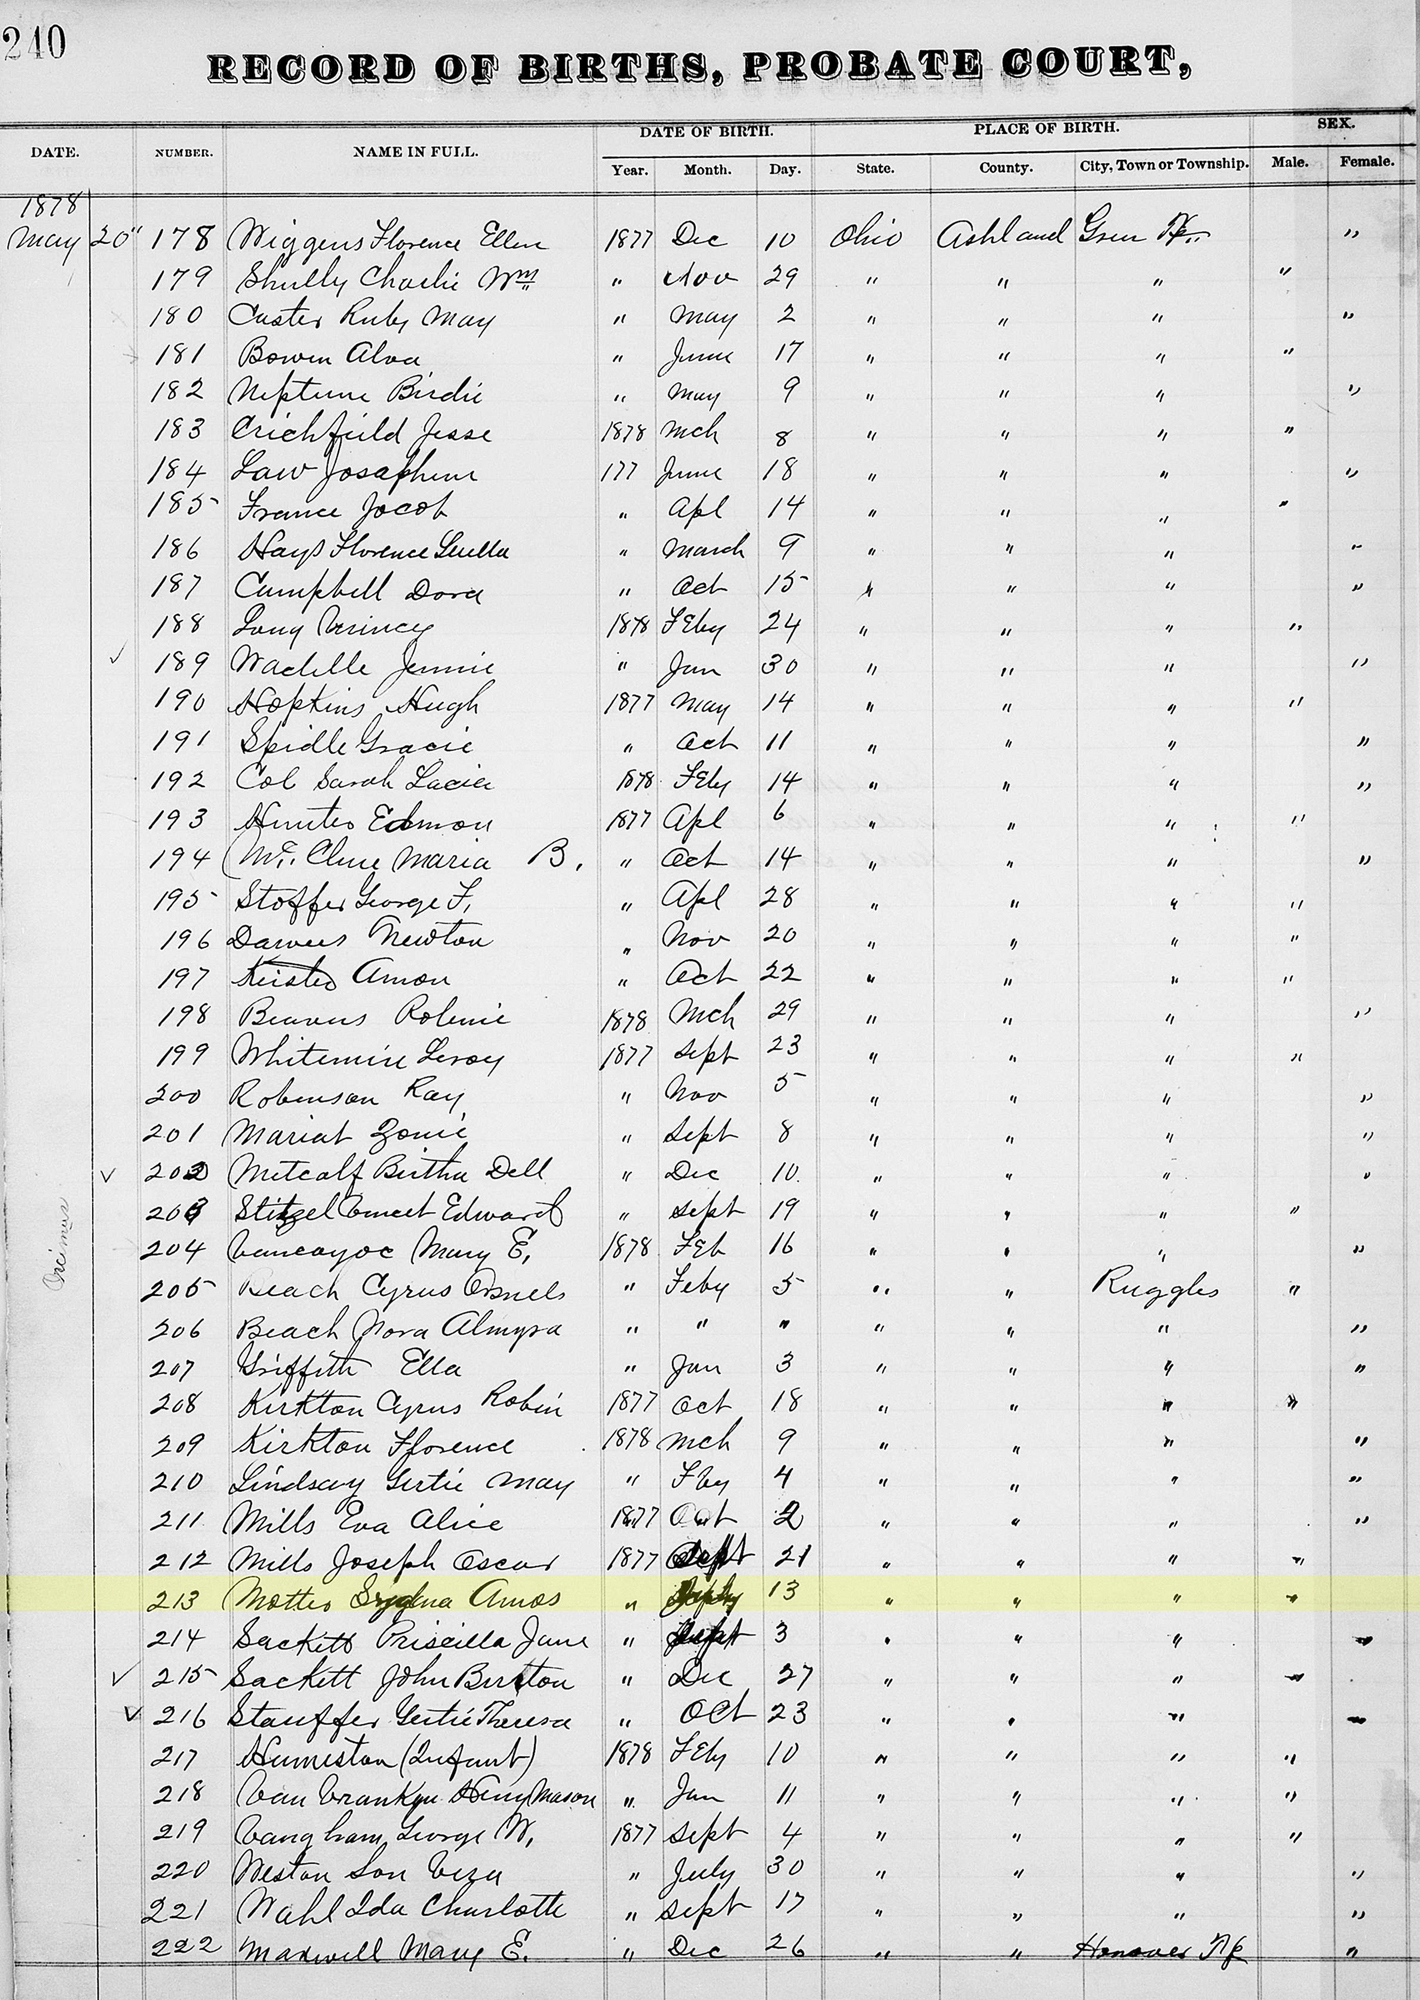 240
RECORD OF BIRTHS, PROBATE COURT,
DATE. NUMBER. NAME IN FULL. DATE OF BIRTH. PLACE OF BIRTH. SEX.
Year. Month. Day. State. County. City, Town or Township. Male. Female.
1878
May 20" 178 Wiggens Florence Ellen 1877 Dec 10 Ohio Ashland Green Tp. "
179 Shully Charlie Wm " Nov 29 " " " "
180 Custer Ruby May " May 2 " " " "
181 Bowen Alva " June 17 " " " "
182 Neptune Birdie " May 9 " " " "
183 Crichfield Jesse 1878 Mch 8 " " " "
184 Law Josaphine 177 June 18 " " " "
185 France Jacob " Apl 14 " " " "
186 Hays Florence Luella " March 9 " " " "
187 Campbell Dora " Oct 15 " " " "
188 Long 1878 Feby 24 " " " "
189 Jennie " Jan 30 " " " "
190 Hopkins Hugh 1877 May 14 " " " "
191 Spidle Gracie " Oct 11 " " " "
192 Col Sarah 1878 Feby 14 " " " "
193 Hunter Edmon 1877 Apl 6 " " " "
194 Mc. Clure Maria B. " Oct 14 " " " "
195 Stoffer George F. " Apl 28 " " " "
196 Newton " Nov 20 " " " "
197 Keister Amon " Oct 22 " " " "
198 Beavers 1878 Mch 29 " " " "
199 Whitemire Leroy 1877 Sept 23 " " " "
200 Robinson Ray " Nov 5 " " " "
201 Mariat Zonie " Sept 8 " " " "
202 Metcalf Birtha Dell " Dec 10 " " " "
203 Stitzel Edward " Sept 19 " " " "
204 Mary E. 1878 Feb 16 " " " "
205 Beach Cyrus " Feby 5 " " Ruggles "
206 Beach Nora Almyra " " " " " " "
207 Griffith Ella " Jan 3 " " " "
208 Kirkton Cyrus Robin 1877 Oct 18 " " " "
209 Kirkton Fflorence 1878 Mch 9 " " " "
210 Lindsay Gertie May " Fby 4 " " " "
211 Mills Eva Alice 1877 Oct 2 " " " "
212 Mills Joseph Oscar 1877 Sept 21 " " " "
213 Motter Amos " 13 " " " "
214 Sackett Priscilla Jane " Sept 3 " " " "
215 Sackett John Burton " Dec 27 " " " "
216 Stauffer Gertie Theresa " Oct 23 " " " "
217 Humiston (Infant) 1878 Feby 10 " " " "
218 Van Vranken Henry Mason " Jan 11 " " " "
219 George W. 1877 Sept 4 " " " "
220 Weston " July 30 " " " "
221 Wahl Ida Charlotte " Sept 17 " " " "
222 Maxwell Mary E. " Dec 26 " " Hanover Tp "